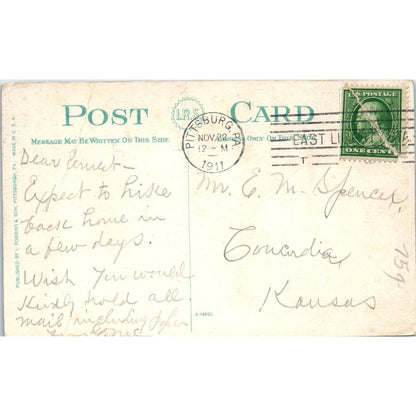 POST CARD
I.R.&S.
MESSAGE MAY BE WRITTEN ON THIS SIDE
ONLY ON THIS SIDE
PITTSBURG, PA.
NOV 22
12 - M
1911
EAST LI
U.S. POSTAGE
ONE CENT
Dear Ernest -
Expect to hike
back home in
a few days.
Wish you would
kindly hold all
mail including
Mr. E. M. Spencer,
Concordia,
Kansas
759
PUBLISHED BY I. ROBBINS & SON, PITTSBURGH, PA. - MADE IN U.S.A.